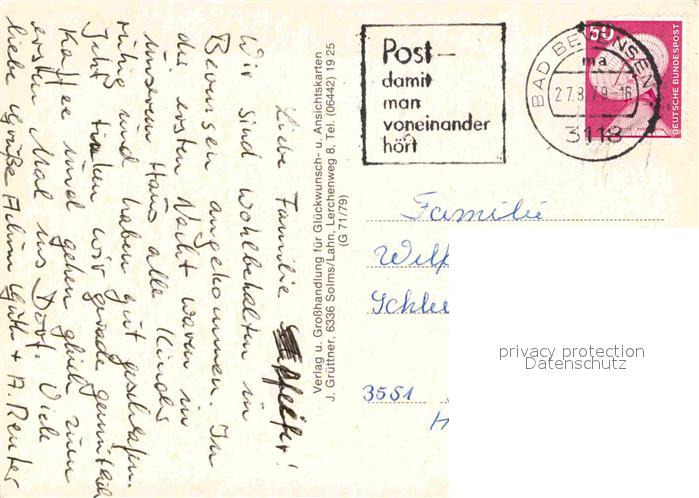 Liebe Familie Pfeifer!
Wir sind wohlbehalten in
Bevensen angekommen. In
der ersten Nacht waren in
unserem Haus alle Kinder
ruhig und haben gut geschlafen.
Jetzt trinken wir gerade gemütlich
Kaffee und gehen gleich zum
ersten Mal ins Dorf. Viele
liebe Grüße
Verlag u. Großhandlung für Glückwunsch- u. Ansichtskarten
J. Grüttner, 6336 Solms/Lahn, Lerchenweg 8. Tel. (06442) 19 25
(G 71/79)
Post-
damit
man
voneinander
hört
BAD BEVENSEN
ma
27.8.79-16
3118
50
DEUTSCHE BUNDESPOST
Familie
Wilf
Schle
3551
H
privacy protection
Datenschutz